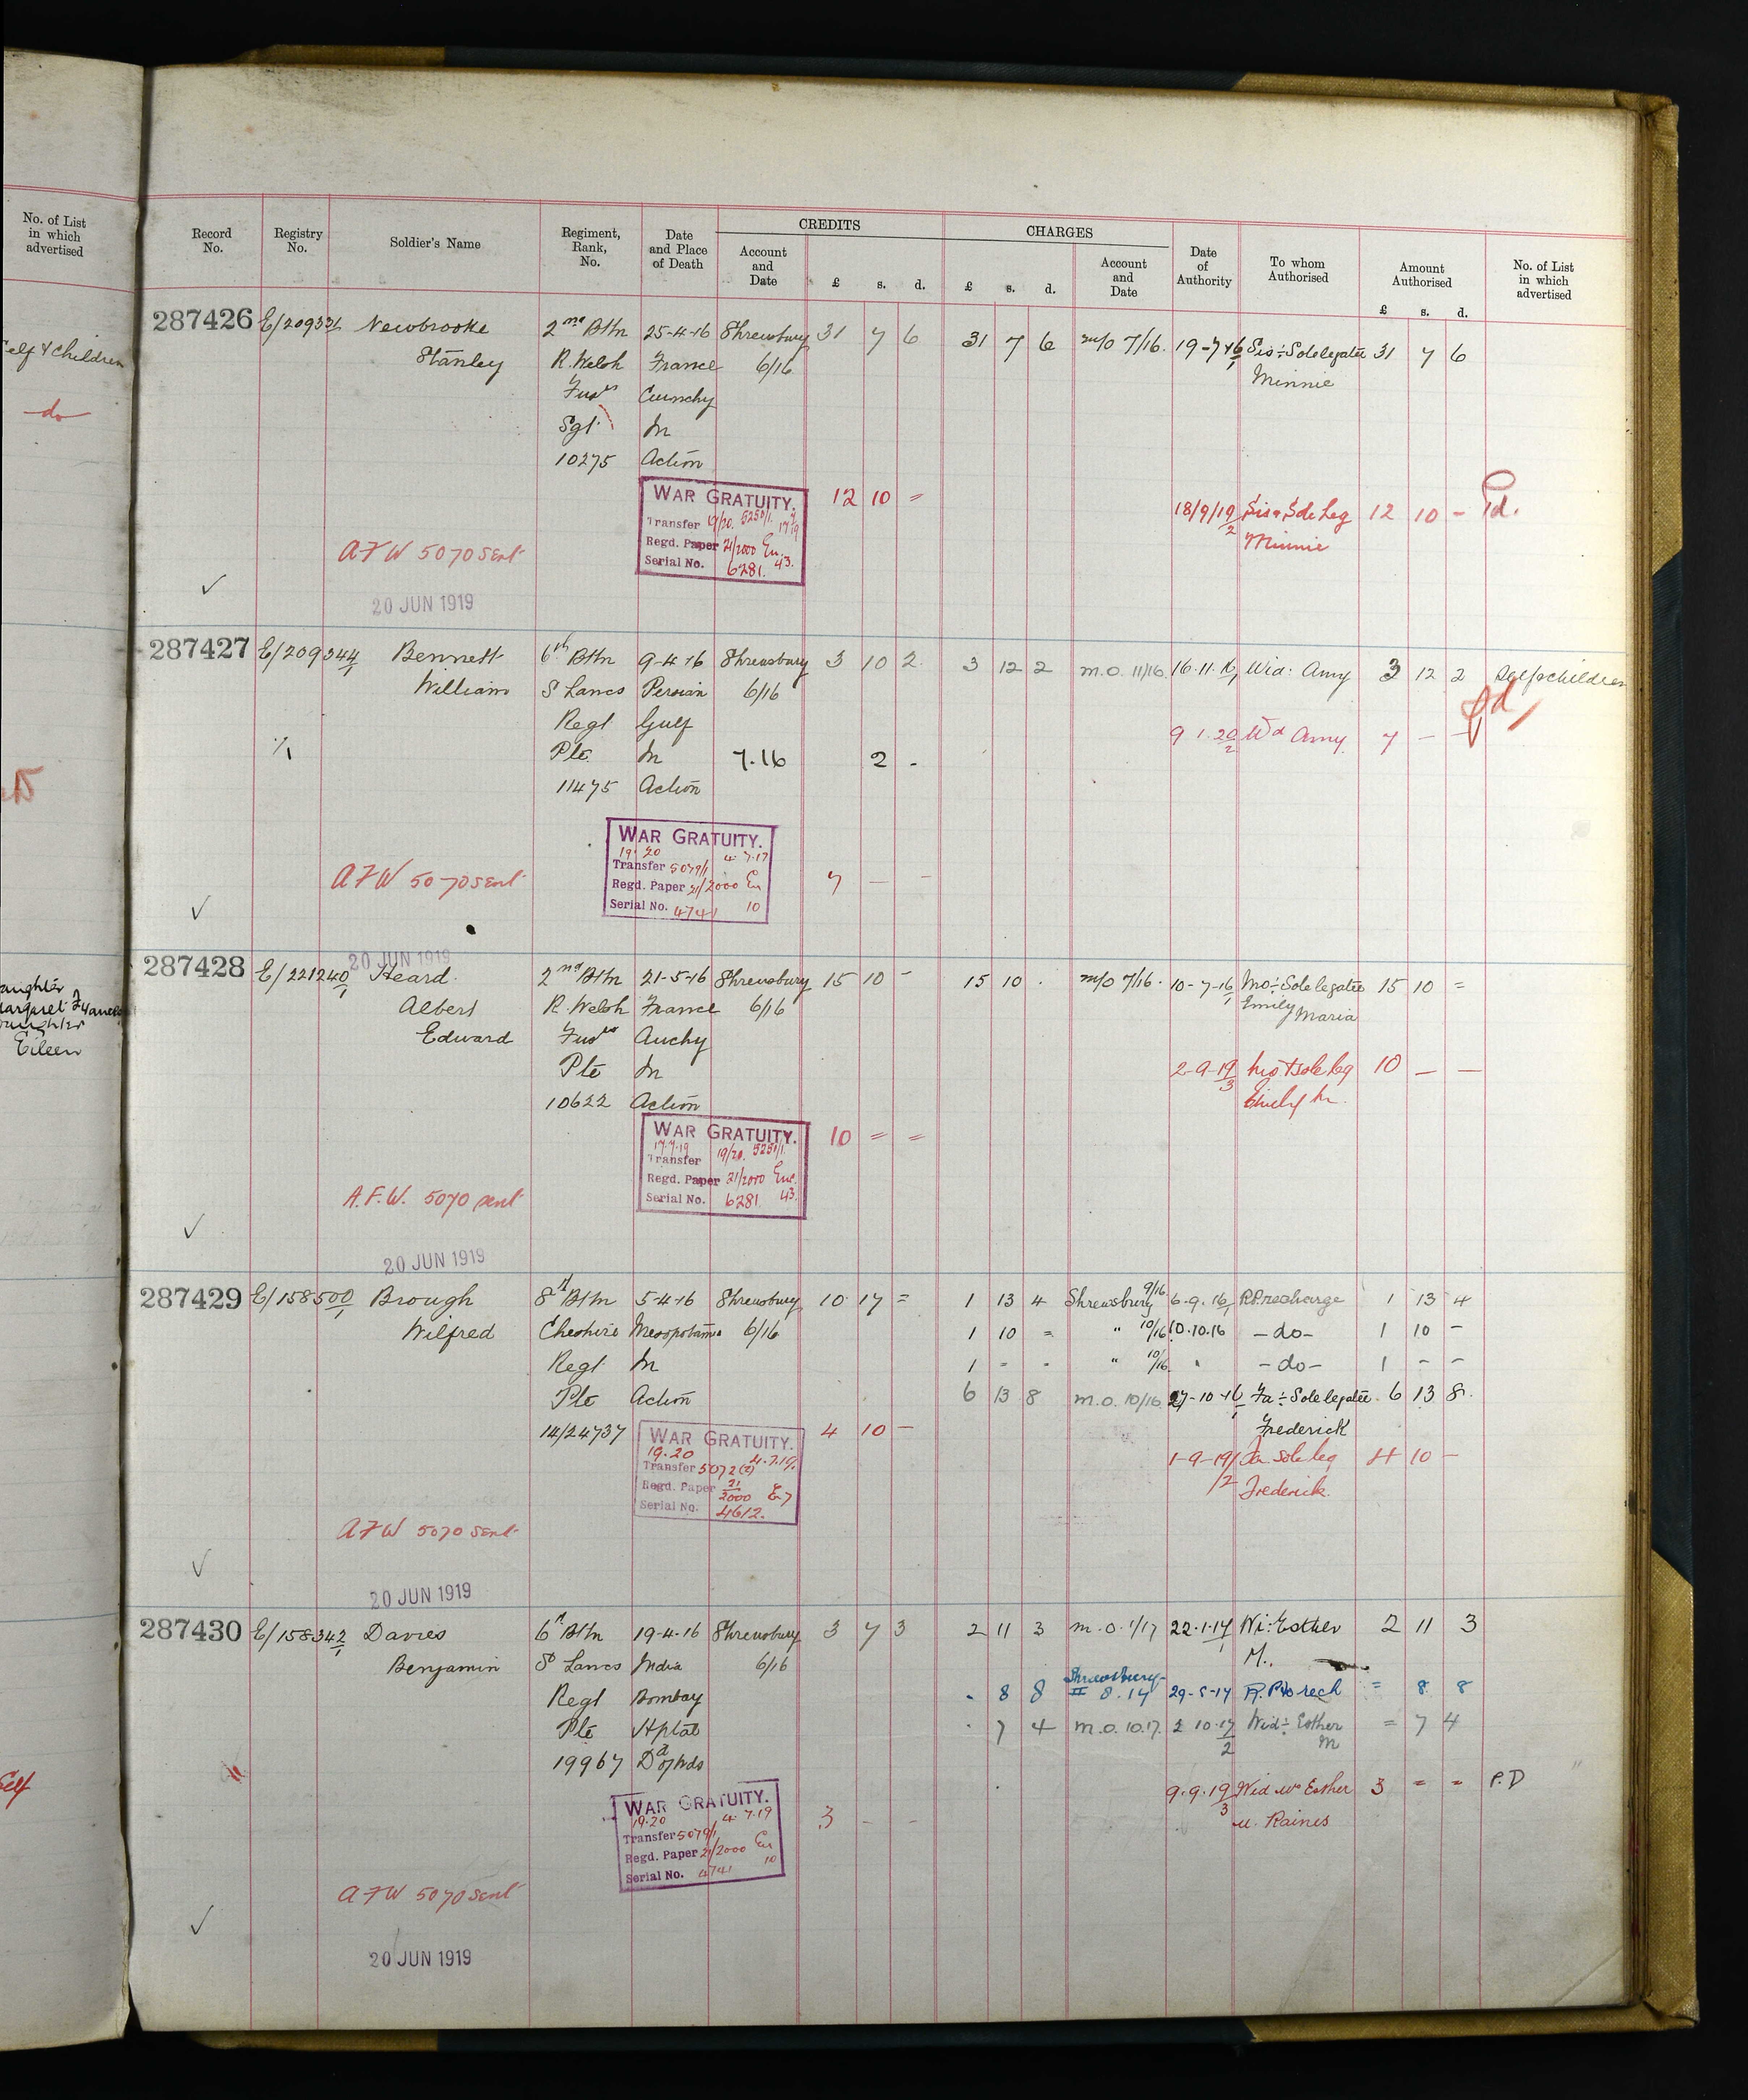 No. of List
in which
advertised
Self & children
do
Daughter
Margaret
Daughter
Eileen
Self
Record No.
Registry No.
Soldier's Name
Regiment, Rank, No.
Date and Place of Death
CREDITS
Account and Date
£ s. d.
CHARGES
£ s. d.
Account and Date
Date of Authority
To whom Authorised
Amount Authorised
£ s. d.
No. of List in which advertised
287426 E/209331 Newbrooke 2nd Bttn 25-4-16 Shrewsbury 31 7 6 31 7 6 m/o 7/16. 19-7-16/1 Sis: Sole legatee 31 7 6
Stanley R. Welsh France 6/16 Minnie
Fusrs Cuinchy
Sgt In
10275 Action
WAR GRATUITY. 12 10 = 18/9/19/2 Sis & Sole Leg 12 10 - Pd.
Transfer 19/20. 5250/1. 17/7/19 Minnie
Regd. Paper 21/2000 En.
Serial No. 6281. 43.
AFW 5070 sent
20 JUN 1919
287427 E/209344/1 Bennett 6th Bttn 9-4-16 Shrewsbury 3 10 2 3 12 2 m.o. 11/16 16.11.16/1 Wid: Amy 3 12 2 Self & children
William S Lancs Persian 6/16
Regt Gulf 9.1.20/2 Wd Amy. 7 - - Pd
Pte. In 7.16 2 -
11475 Action
WAR GRATUITY.
19.20 4.7.17
Transfer 5079/1
Regd. Paper 21/2000 En 7 — -
Serial No. 4741 10
AFW 5070 sent
20 JUN 1919
287428 E/221240/1 Heard. 2nd Bttn 21-5-16 Shrewsbury 15 10 - 15 10 . m/o 7/16. 10-7-16/1 Mo: Sole legatee 15 10 =
Albert R. Welsh France 6/16 Emily Maria
Edward Fusrs Auchy
Pte In 2-9-19/3 Mo & sole leg 10 — —
10622 Action Emily M.
WAR GRATUITY. 10 = =
17.7.19 19/20. 5250/1.
Transfer
Regd. Paper 21/2000 Enc.
Serial No. 6281. 43.
A.F.W. 5070 sent
20 JUN 1919
287429 E/158500/1 Brough 8th Bttn 5-4-16 Shrewsbury 10 17 = 1 13 4 Shrewsbury 9/16 6.9.16/1 R.P. recharge 1 13 4
Wilfred Cheshire Mesopotamia 6/16 1 10 = " 10/16 10.10.16 -do- 1 10 -
Regt In 1 = - " 10/16 " -do- 1 - -
Pte Action 6 13 8 m.o. 10/16. 27-10-16/1 Fa: Sole legatee. 6 13 8.
14/24737 Frederick
WAR GRATUITY. 4 10 - 1-9-19/2 Fa. Sole leg 4 10 -
19.20 4.7.19. Frederick.
Transfer 5072(2)
Regd. Paper 21/2000 E7
Serial No. 4612.
AFW 5070 sent
20 JUN 1919
287430 E/158342/1 Davies 6th Bttn 19-4-16 Shrewsbury 3 7 3 2 11 3 m.o. 1/17 22.1.17/1 Wi: Esther 2 11 3
Benjamin So Lancs India 6/16 M.
Regt Bombay . 8 8 Shrewsbury II 8.17 29-5-17 R.P. rech = 8 8
Pte Hptal . 7 4 m.o. 10.17. 2 10.17/2 Wid: Esther M = 7 4
19967 Dd of Wds
9.9.19/3 Wid Esther 3 = = P.D
M. Raines
WAR GRATUITY. 3 - -
19.20 4.7.19
Transfer 5079/1
Regd. Paper 21/2000 En
Serial No. 4741 10
AFW 5070 sent
20 JUN 1919